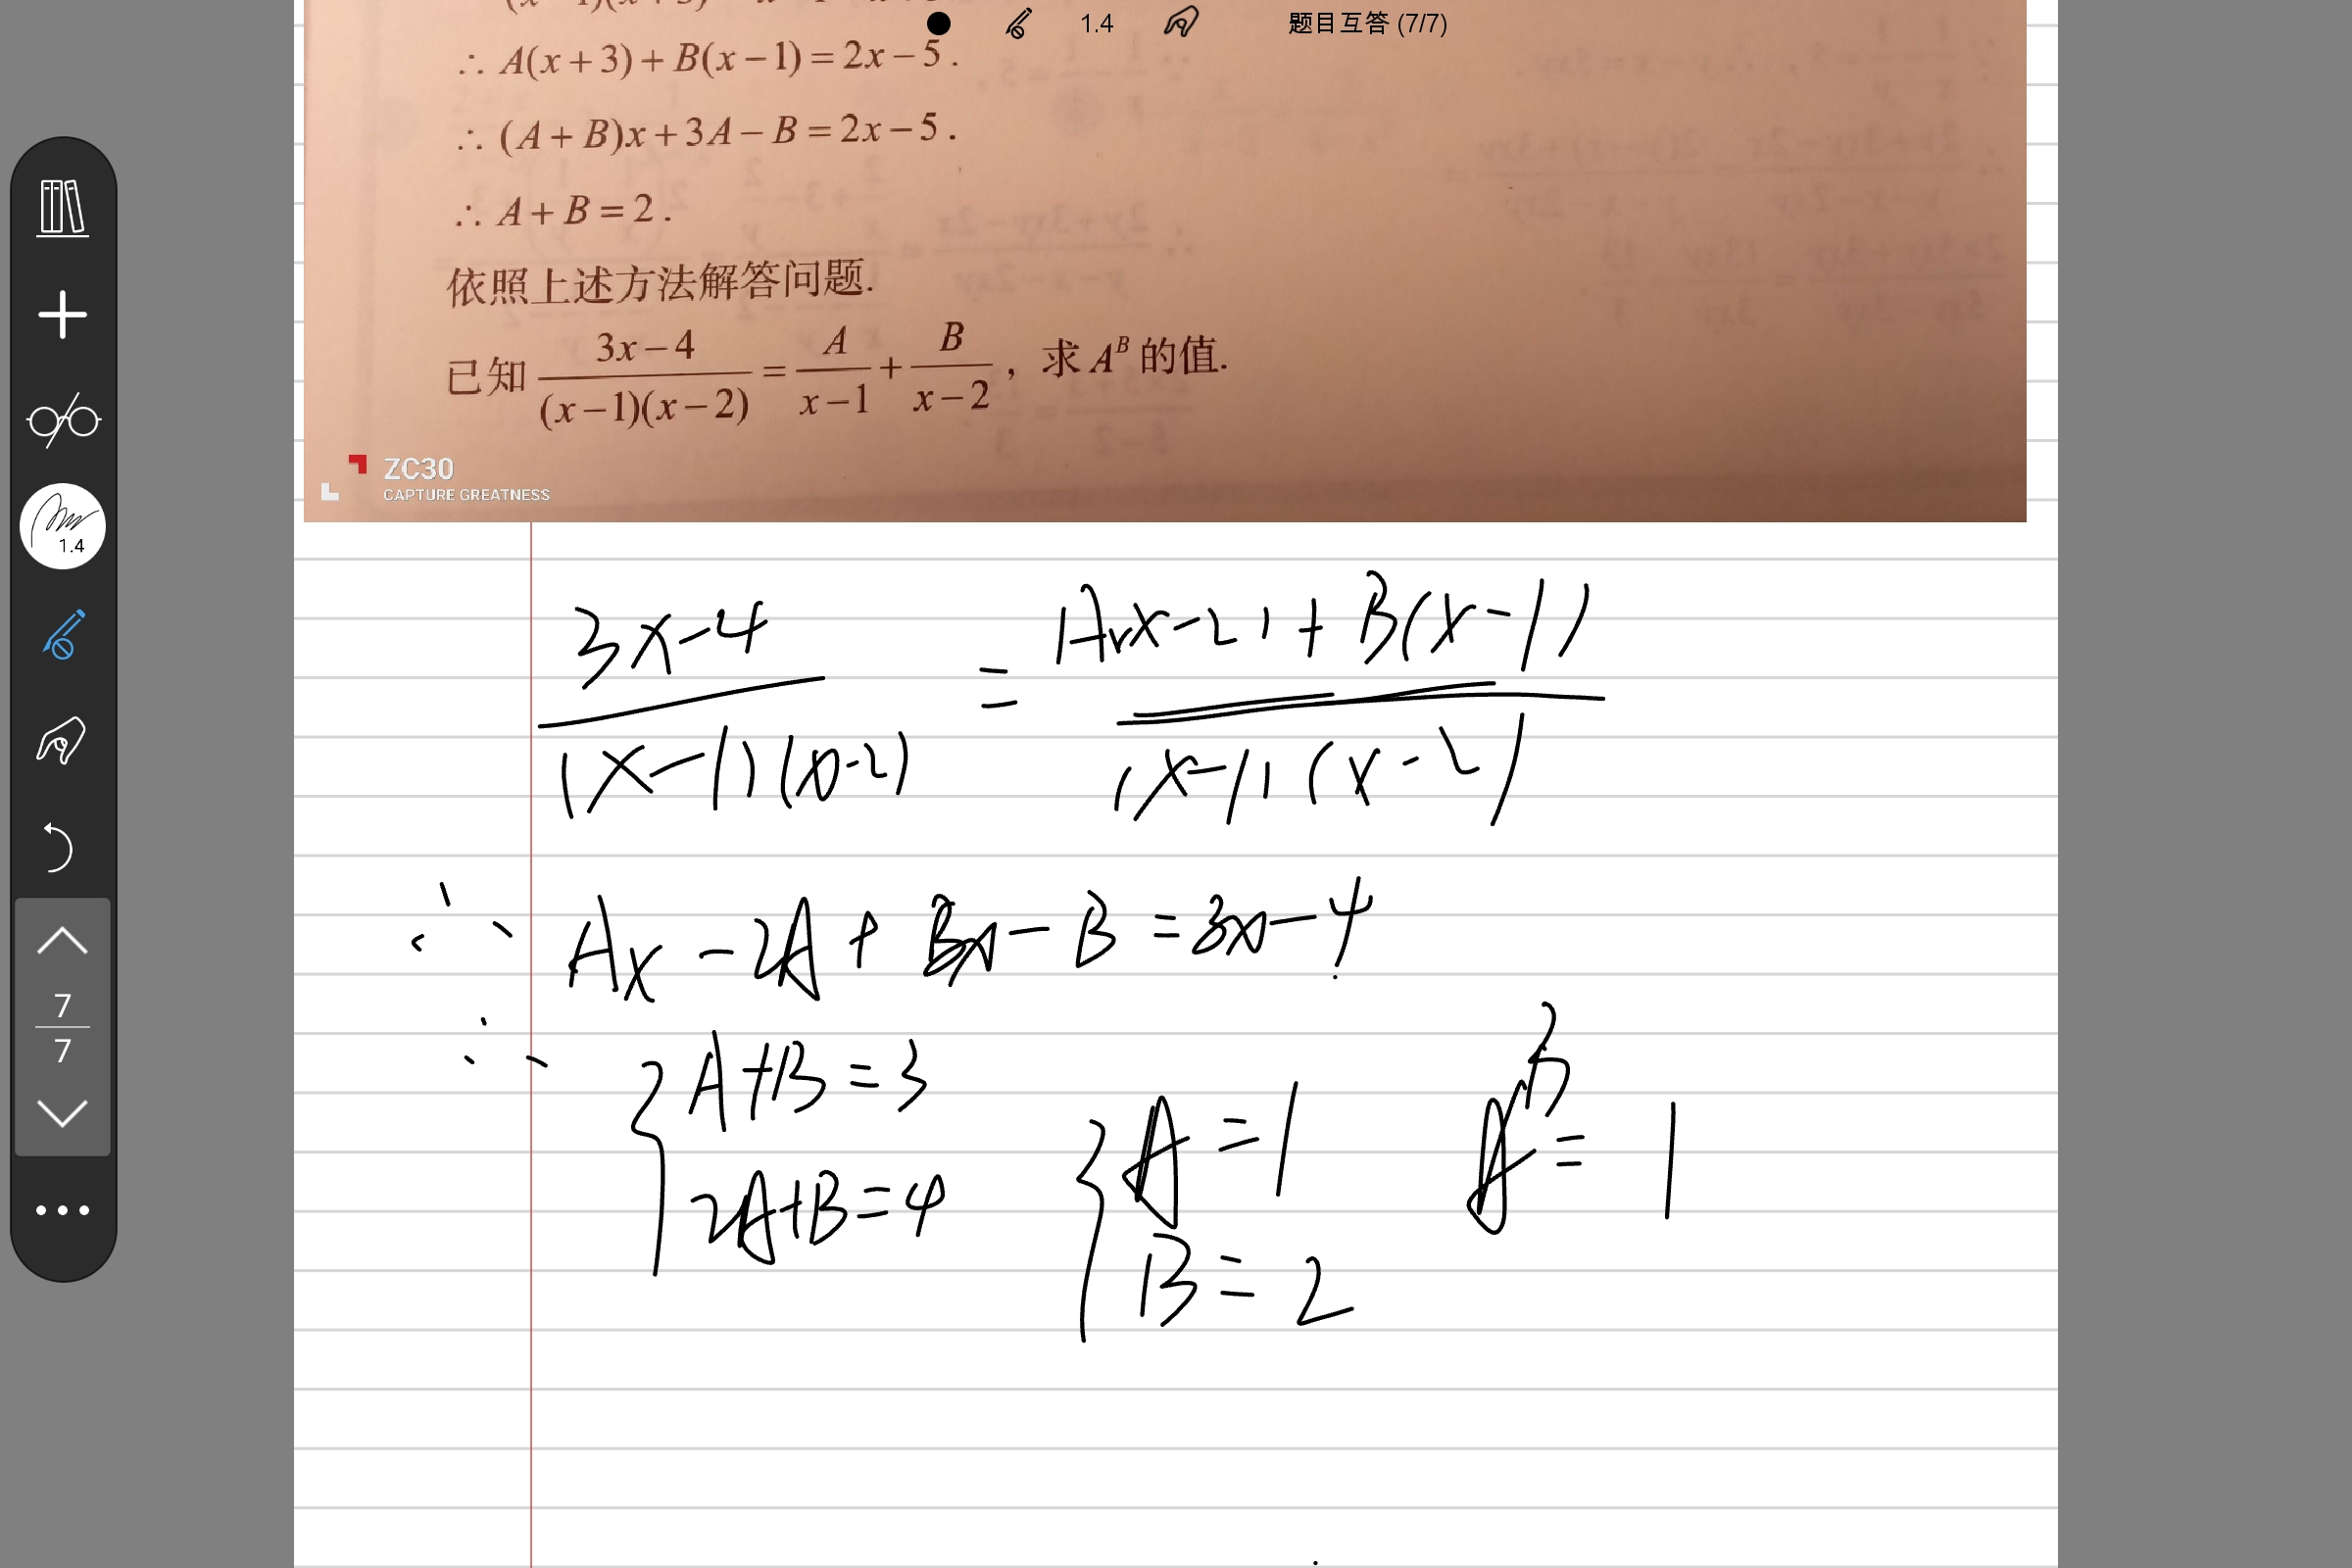 1.4 题目互答 (7/7)
∴ A(x+3)+B(x−1)=2x−5.
∴ (A+B)x+3A−B=2x−5.
∴ A+B=2.
依照上述方法解答问题.
已知 (3x−4)/((x−1)(x−2)) = A/(x−1) + B/(x−2), 求 A^B 的值.
ZC30
CAPTURE GREATNESS
1.4
7
7
(3x−4)/((x−1)(x−2)) = (A(x−2)+B(x−1))/((x−1)(x−2))
∴ Ax−2A+Bx−B=3x−4
∴ { A+B=3
2A+B=4
{ A=1
B=2
A^B=1